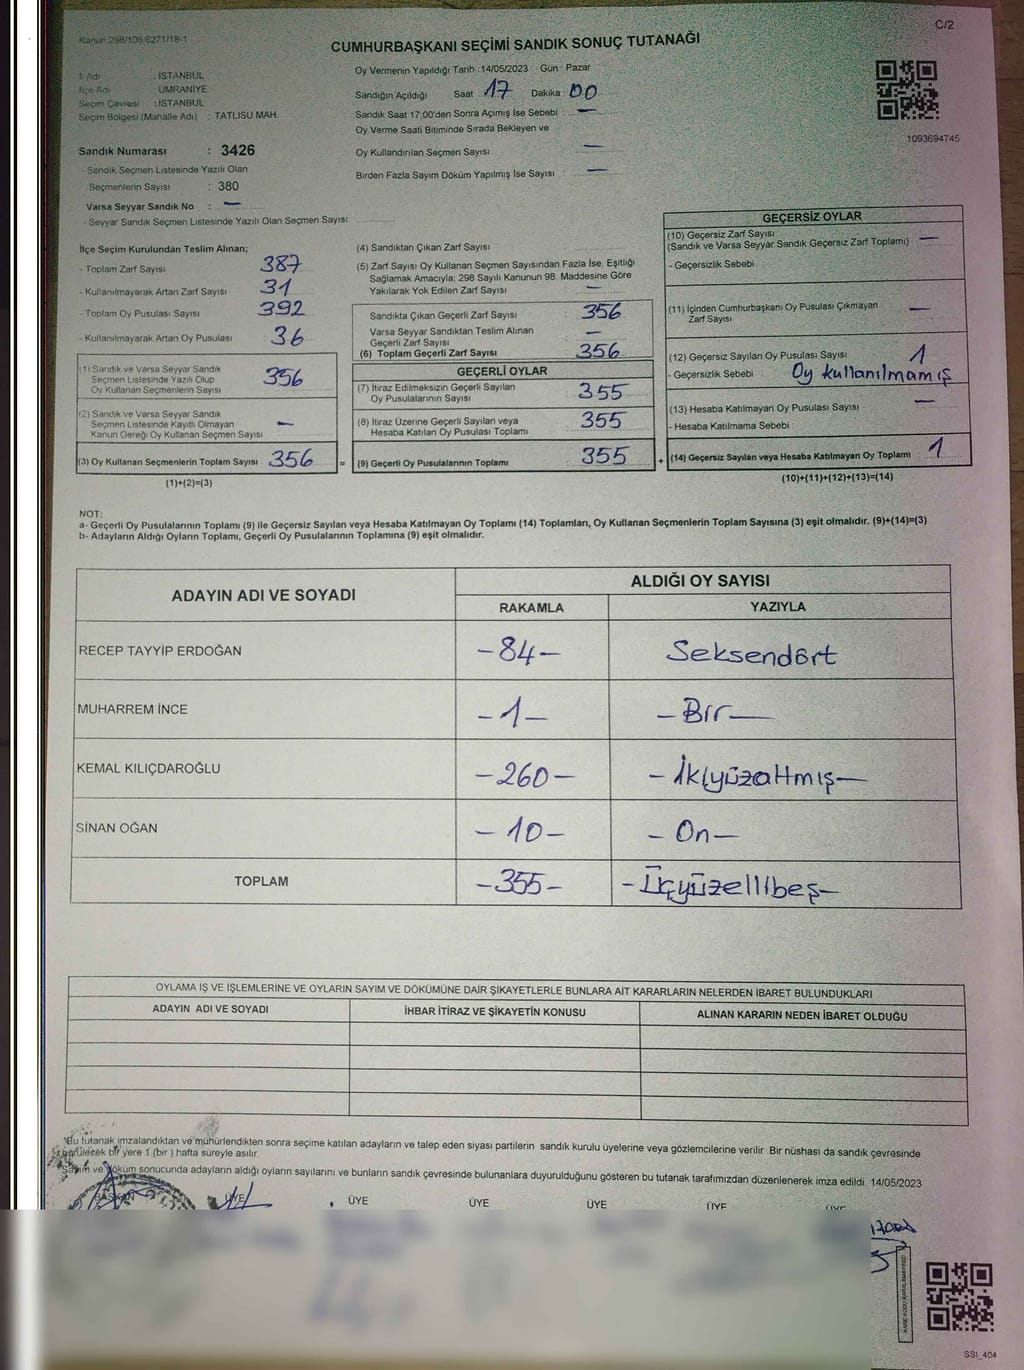 C/2
Kanun 298/105 6271/18-1
CUMHURBAŞKANI SEÇİMİ SANDIK SONUÇ TUTANAĞI
İl Adı : İSTANBUL
İlçe Adı ÜMRANİYE
Seçim Çevresi : İSTANBUL
Seçim Bölgesi (Mahalle Adı) : TATLISU MAH.
Sandık Numarası : 3426
- Sandık Seçmen Listesinde Yazılı Olan
Seçmenlerin Sayısı : 380
Varsa Seyyar Sandık No : —
- Seyyar Sandık Seçmen Listesinde Yazılı Olan Seçmen Sayısı:
Oy Vermenin Yapıldığı Tarih :14/05/2023 Gün : Pazar
Sandığın Açıldığı Saat 17 Dakika : 00
Sandık Saat 17:00'den Sonra Açımış İse Sebebi : —
Oy Verme Saati Bitiminde Sırada Bekleyen ve
Oy Kullandırılan Seçmen Sayısı —
Birden Fazla Sayım Döküm Yapılmış İse Sayısı : —
1093694745
İlçe Seçim Kurulundan Teslim Alınan;
- Toplam Zarf Sayısı 387
- Kullanılmayarak Artan Zarf Sayısı 31
- Toplam Oy Pusulası Sayısı 392
- Kullanılmayarak Artan Oy Pusulası 36
(1) Sandık ve Varsa Seyyar Sandık
Seçmen Listesinde Yazılı Olup
Oy Kullanan Seçmenlerin Sayısı 356
(2) Sandık ve Varsa Seyyar Sandık
Seçmen Listesinde Kayıtlı Olmayan
Kanun Gereği Oy Kullanan Seçmen Sayısı —
(3) Oy Kullanan Seçmenlerin Toplam Sayısı 356 =
(1)+(2)=(3)
(4) Sandıktan Çıkan Zarf Sayısı
(5) Zarf Sayısı Oy Kullanan Seçmen Sayısından Fazla İse, Eşitliği
Sağlamak Amacıyla; 298 Sayılı Kanunun 98. Maddesine Göre
Yakılarak Yok Edilen Zarf Sayısı : —
Sandıkta Çıkan Geçerli Zarf Sayısı : 356
Varsa Seyyar Sandıktan Teslim Alınan
Geçerli Zarf Sayısı —
(6) Toplam Geçerli Zarf Sayısı 356
GEÇERLİ OYLAR
(7) İtiraz Edilmeksizin Geçerli Sayılan
Oy Pusulalarının Sayısı : 355
(8) İtiraz Üzerine Geçerli Sayılan veya
Hesaba Katılan Oy Pusulası Toplamı : 355
(9) Geçerli Oy Pusulalarının Toplamı : 355 +
GEÇERSİZ OYLAR
(10) Geçersiz Zarf Sayısı
(Sandık ve Varsa Seyyar Sandık Geçersiz Zarf Toplamı) —
- Geçersizlik Sebebi :
(11) İçinden Cumhurbaşkanı Oy Pusulası Çıkmayan
Zarf Sayısı —
(12) Geçersiz Sayılan Oy Pusulası Sayısı 1
- Geçersizlik Sebebi : Oy kullanılmamış
(13) Hesaba Katılmayan Oy Pusulası Sayısı : —
- Hesaba Katılmama Sebebi :
(14) Geçersiz Sayılan veya Hesaba Katılmayan Oy Toplamı : 1
(10)+(11)+(12)+(13)=(14)
NOT:
a- Geçerli Oy Pusulalarının Toplamı (9) ile Geçersiz Sayılan veya Hesaba Katılmayan Oy Toplamı (14) Toplamları, Oy Kullanan Seçmenlerin Toplam Sayısına (3) eşit olmalıdır. (9)+(14)=(3)
b- Adayların Aldığı Oyların Toplamı, Geçerli Oy Pusulalarının Toplamına (9) eşit olmalıdır.
ADAYIN ADI VE SOYADI ALDIĞI OY SAYISI
RAKAMLA YAZIYLA
RECEP TAYYİP ERDOĞAN -84- Seksendört
MUHARREM İNCE -1- -Bir-
KEMAL KILIÇDAROĞLU -260- -İkiyüzaltmış-
SİNAN OĞAN -10- -On-
TOPLAM -355- -Üçyüzellibeş-
OYLAMA İŞ VE İŞLEMLERİNE VE OYLARIN SAYIM VE DÖKÜMÜNE DAİR ŞİKAYETLERLE BUNLARA AİT KARARLARIN NELERDEN İBARET BULUNDUKLARI
ADAYIN ADI VE SOYADI İHBAR İTİRAZ VE ŞİKAYETİN KONUSU ALINAN KARARIN NEDEN İBARET OLDUĞU
*Bu tutanak imzalandıktan ve mühürlendikten sonra seçime katılan adayların ve talep eden siyasi partilerin sandık kurulu üyelerine veya gözlemcilerine verilir. Bir nüshası da sandık çevresinde
görülecek bir yere 1 (bir ) hafta süreyle asılır.
Sayım ve döküm sonucunda adayların aldığı oyların sayılarını ve bunların sandık çevresinde bulunanlara duyurulduğunu gösteren bu tutanak tarafımızdan düzenlenerek imza edildi. 14/05/2023
BAŞKAN ÜYE ÜYE ÜYE ÜYE ÜYE ÜYE
SSI_404